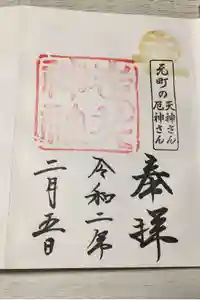 元町の天神さん
厄神さん
奉拝
令和二年
二月五日